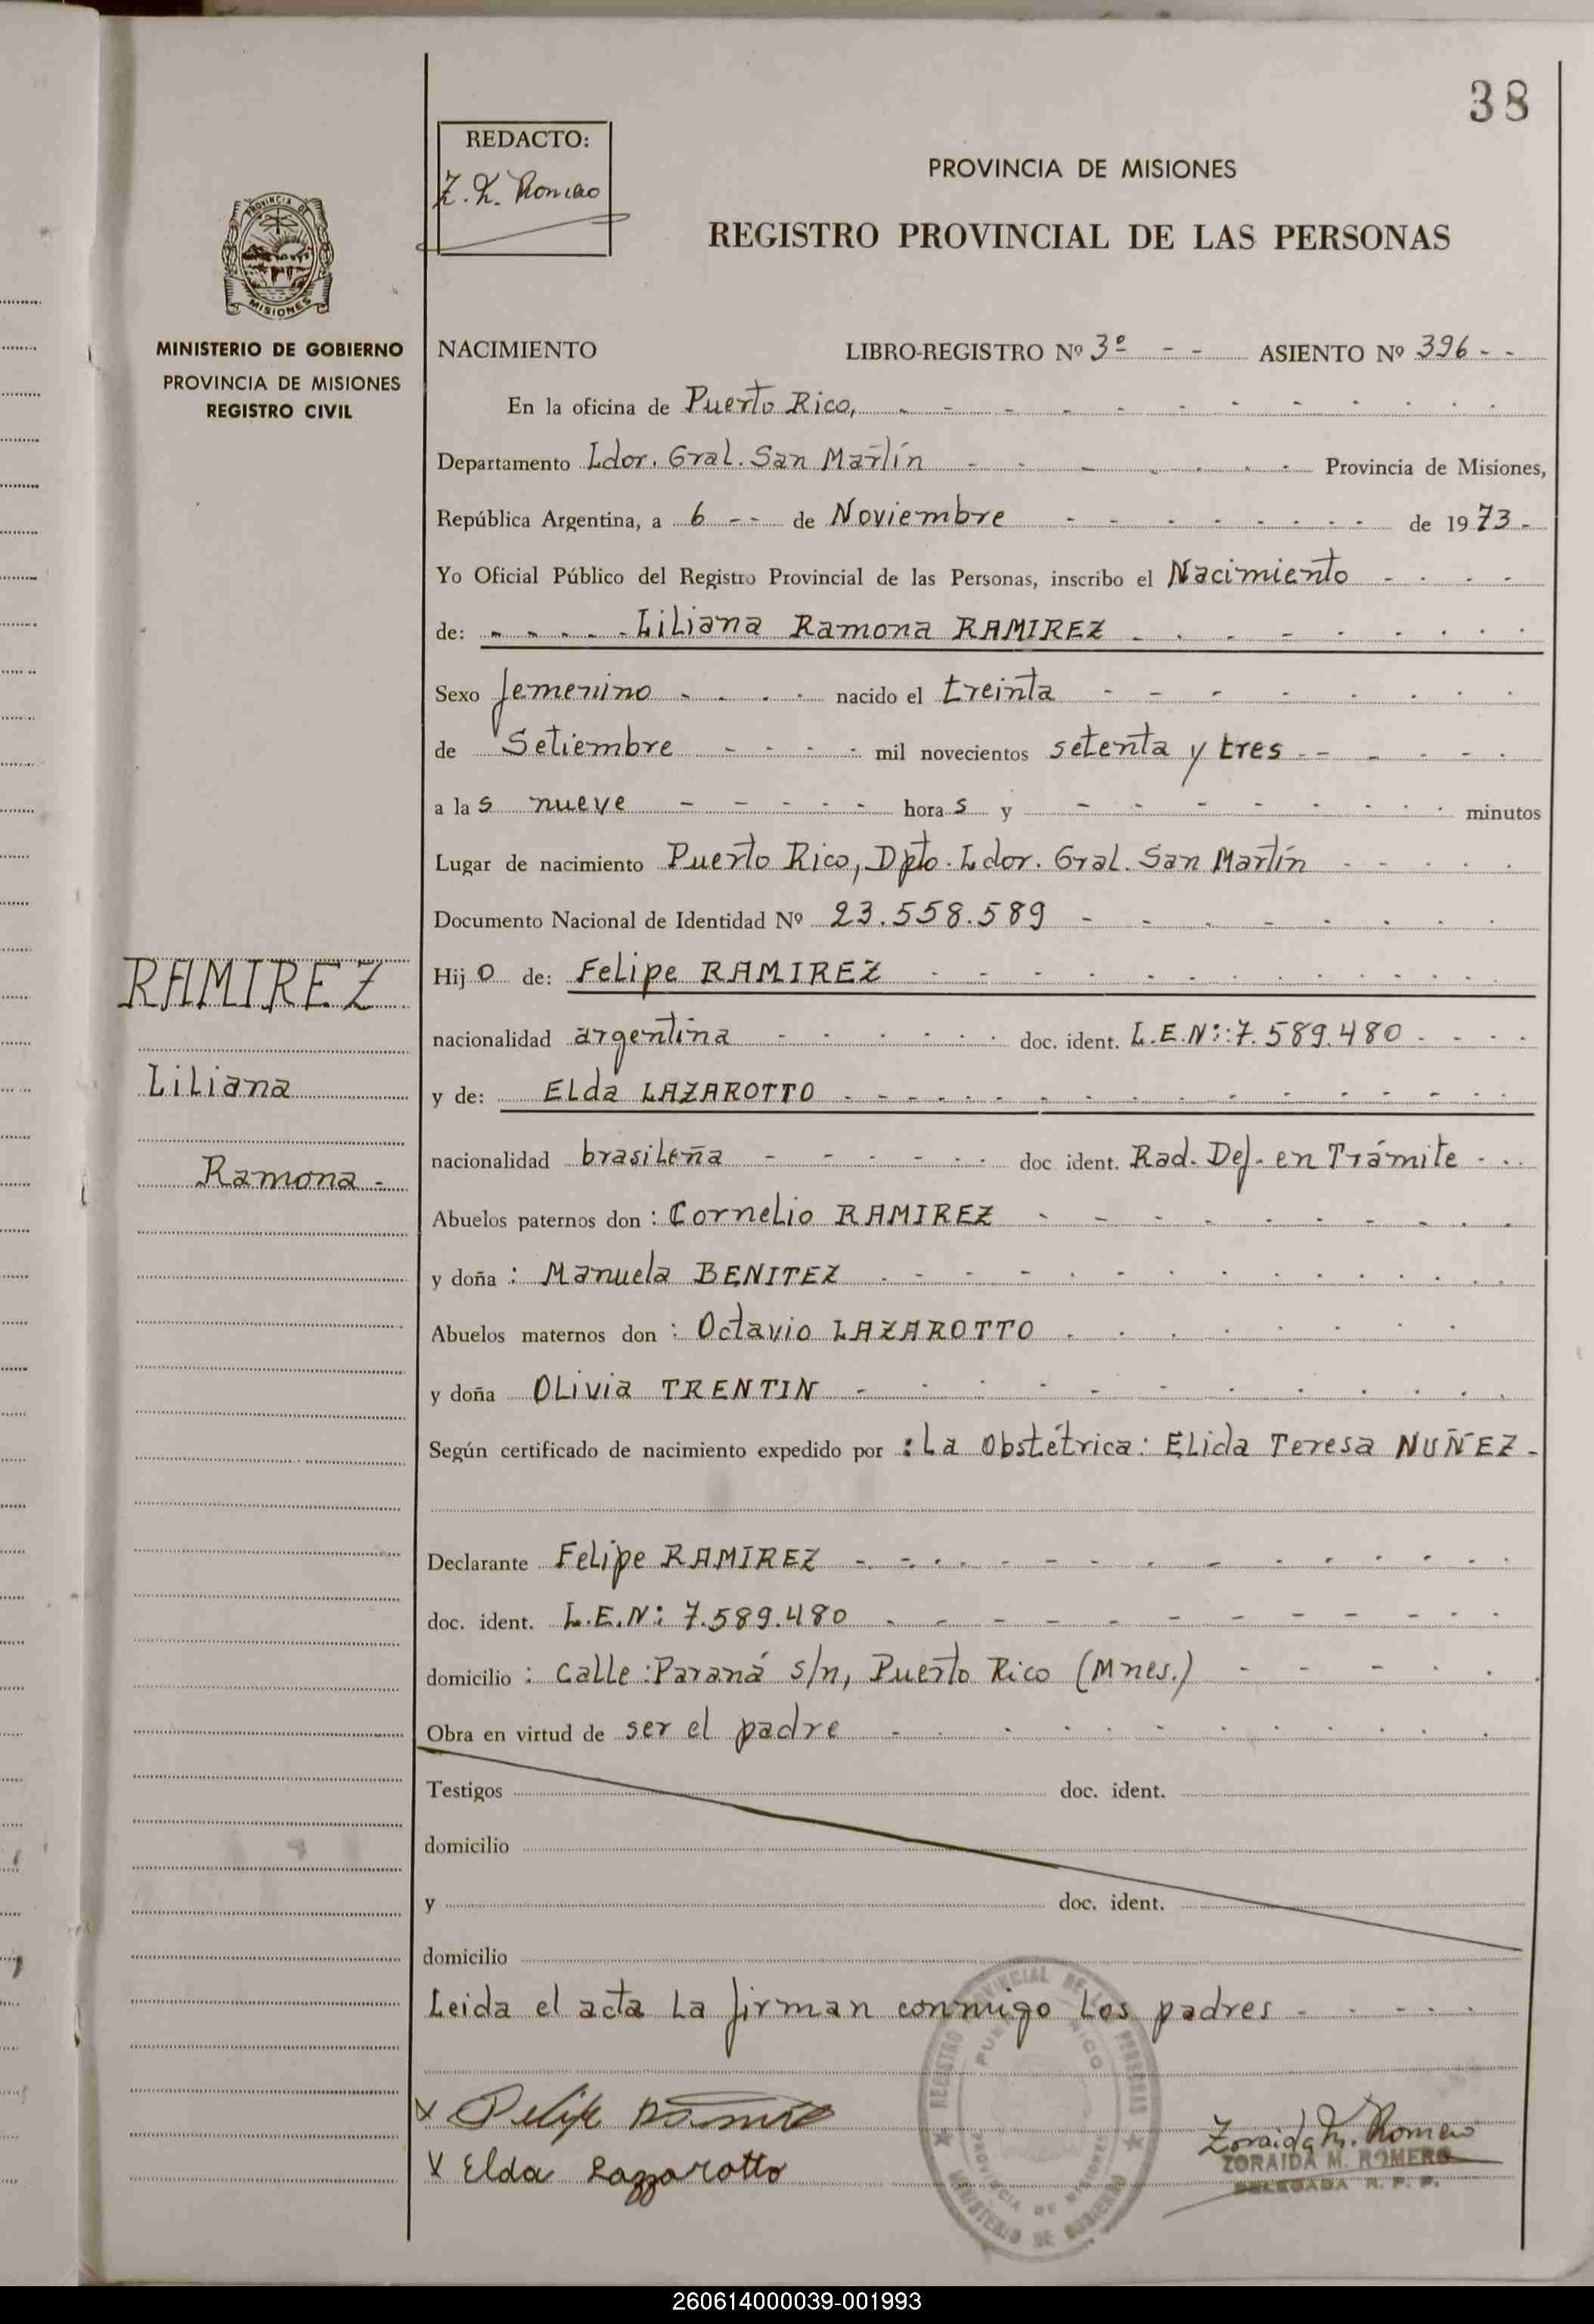 38
REDACTO:
Z. K. Romero
PROVINCIA DE MISIONES
REGISTRO PROVINCIAL DE LAS PERSONAS
PROVINCIA DE
MISIONES
MINISTERIO DE GOBIERNO
PROVINCIA DE MISIONES
REGISTRO CIVIL
NACIMIENTO LIBRO-REGISTRO Nº 3º - - ASIENTO Nº 396 - -
En la oficina de Puerto Rico,
Departamento Ldor. Gral. San Martín Provincia de Misiones,
República Argentina, a 6 -- de Noviembre de 1973 -
Yo Oficial Público del Registro Provincial de las Personas, inscribo el Nacimiento
de: Liliana Ramona RAMIREZ
Sexo femenino nacido el treinta
de Setiembre mil novecientos setenta y tres
a las nueve horas y minutos
Lugar de nacimiento Puerto Rico, Dpto. Ldor. Gral. San Martín
Documento Nacional de Identidad Nº 23.558.589
Hijo de: Felipe RAMIREZ
nacionalidad argentina doc. ident. L.E.Nº: 7.589.480
y de: Elda LAZAROTTO
nacionalidad brasileña doc ident. Rad. Def. en Trámite
Abuelos paternos don : Cornelio RAMIREZ
y doña : Manuela BENITEZ
Abuelos maternos don : Octavio LAZAROTTO
y doña Olivia TRENTIN
Según certificado de nacimiento expedido por : La Obstétrica: Elida Teresa NUÑEZ -
Declarante Felipe RAMIREZ
doc. ident. L.E.N: 7.589.480
domicilio : calle: Paraná s/n, Puerto Rico (Mnes.)
Obra en virtud de ser el padre
Testigos doc. ident.
domicilio
y doc. ident.
domicilio
Leida el acta la firman conmigo los padres
RAMIREZ
Liliana
Ramona -
X Felipe Ramirez
X Elda Lazzarotto
REGISTRO PROVINCIAL DE LAS PERSONAS
PUERTO RICO
PROVINCIA DE MISIONES
MINISTERIO DE GOBIERNO
Zoraida M. Romero
ZORAIDA M. ROMERO
DELEGADA R. P. P.
260614000039-001993